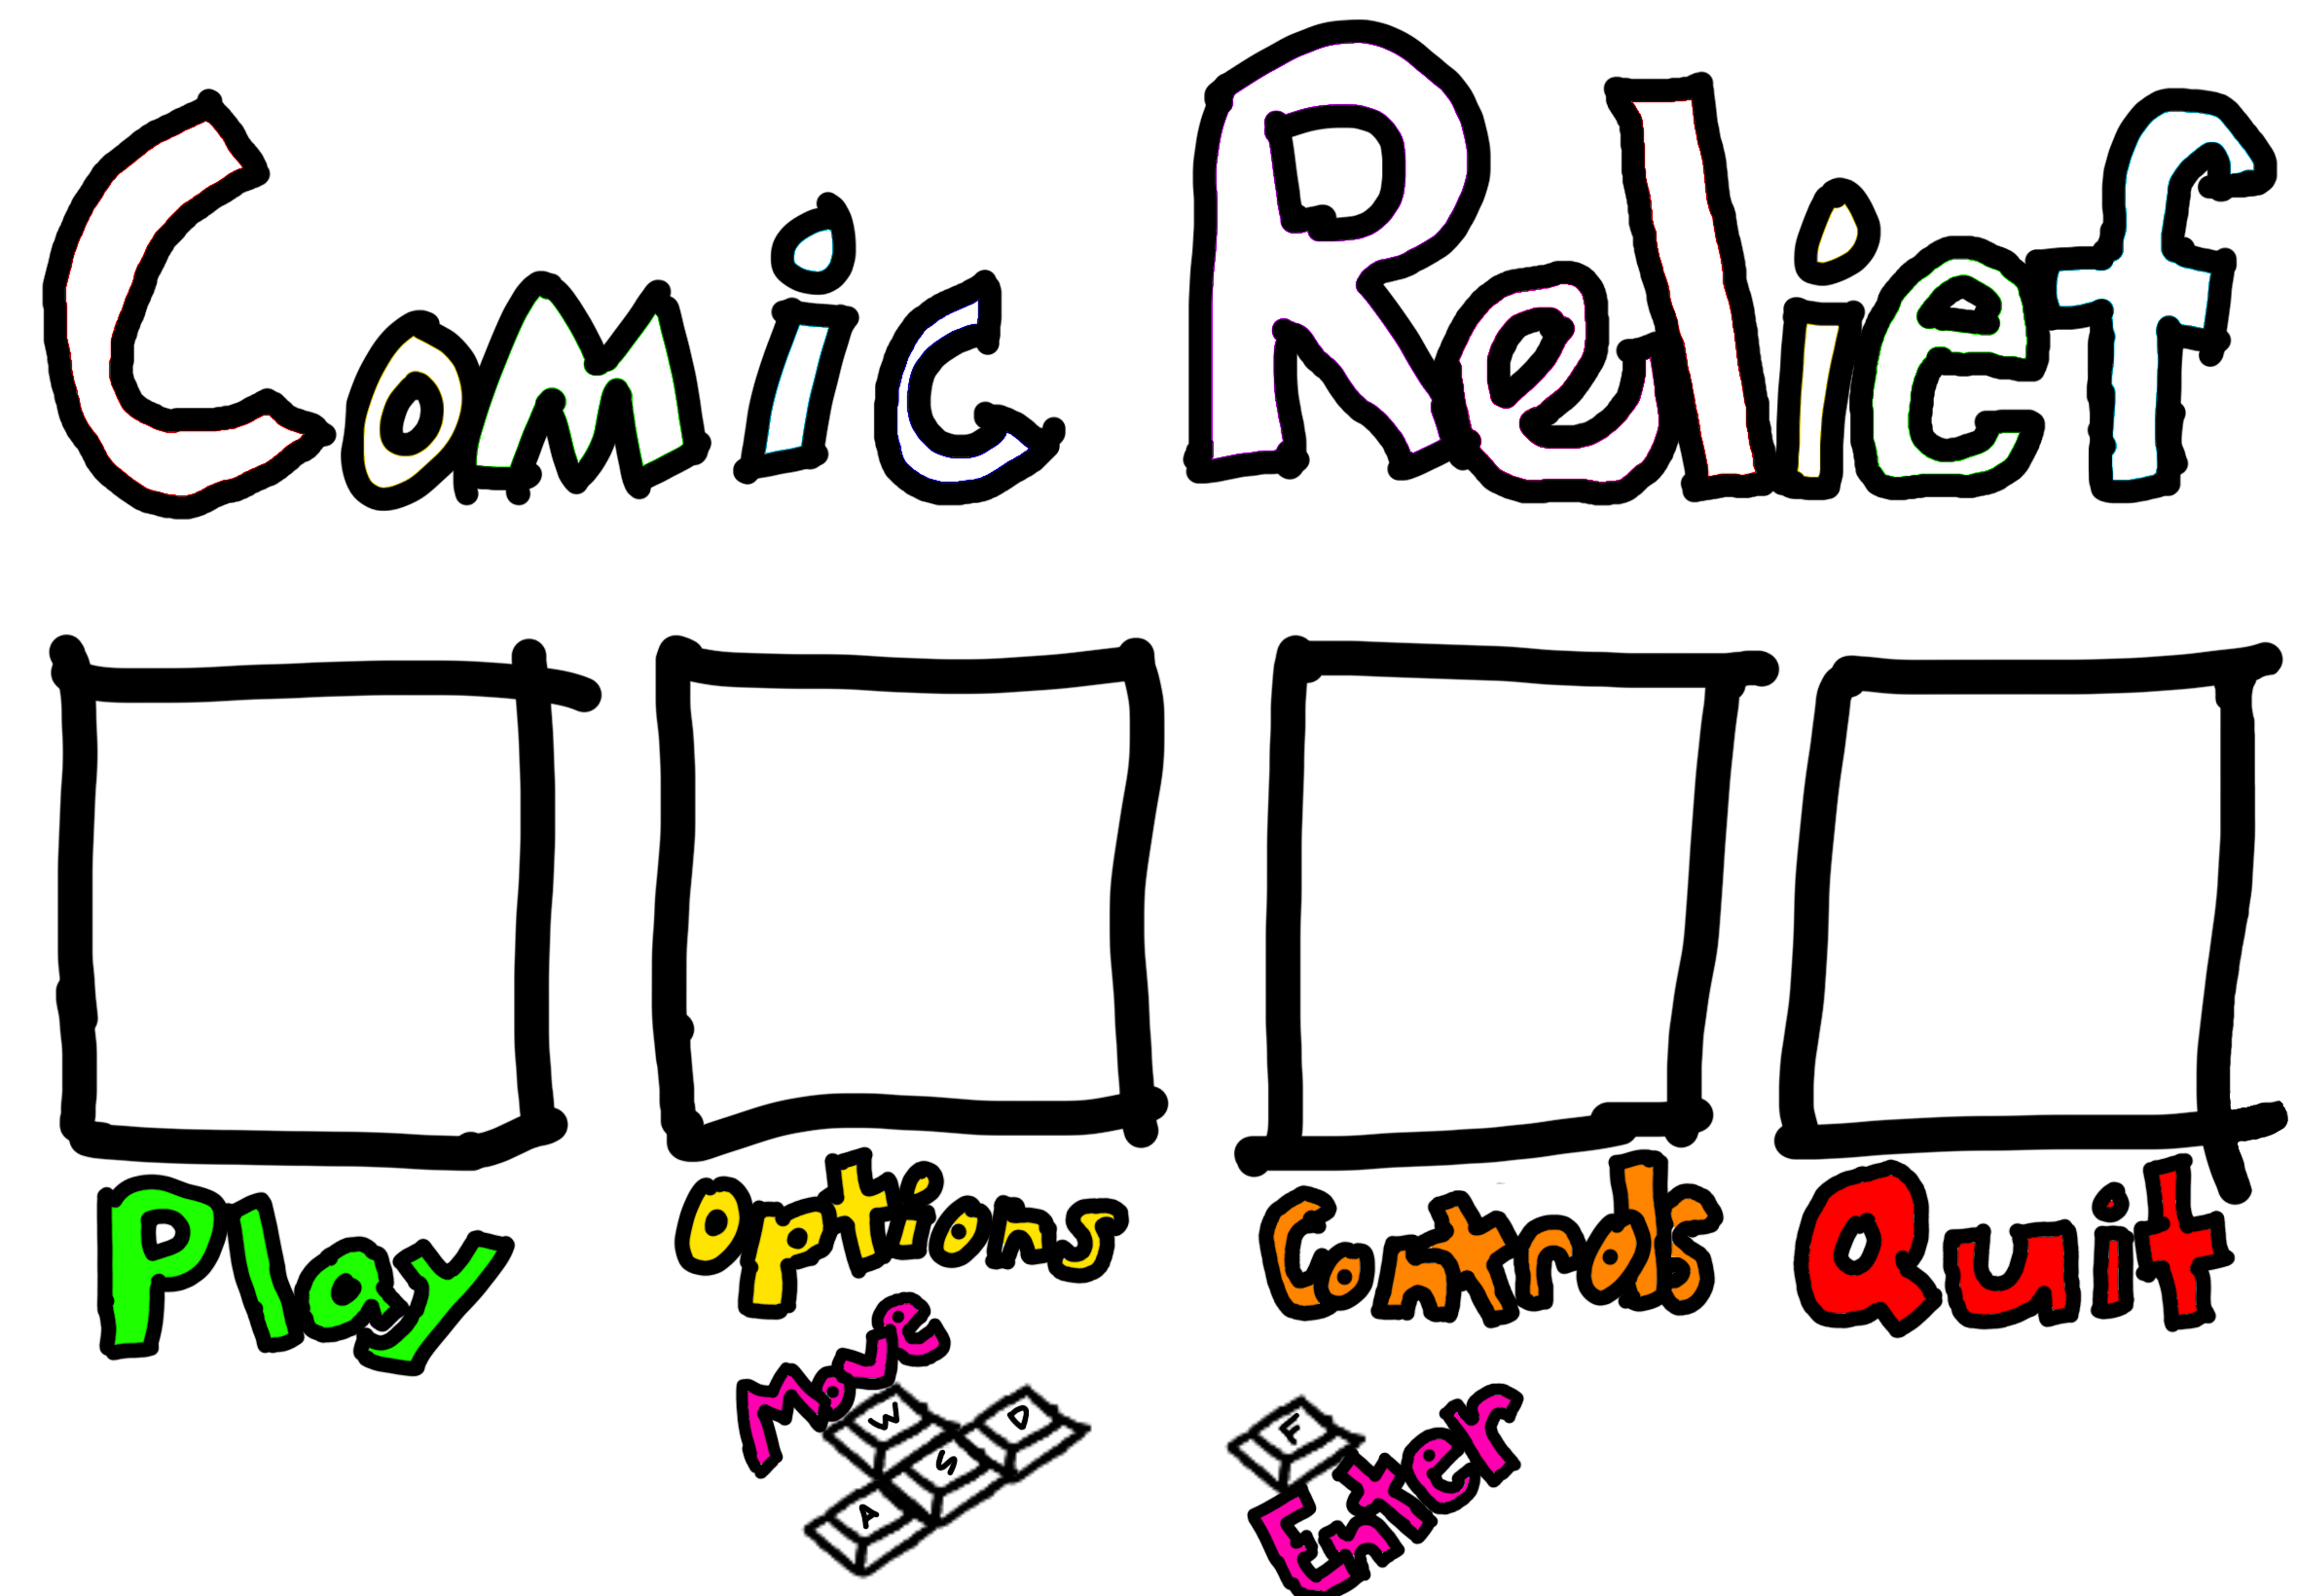 Comic Relief
Play Options Controls Quit
Move
W D
S
A
F
Enter